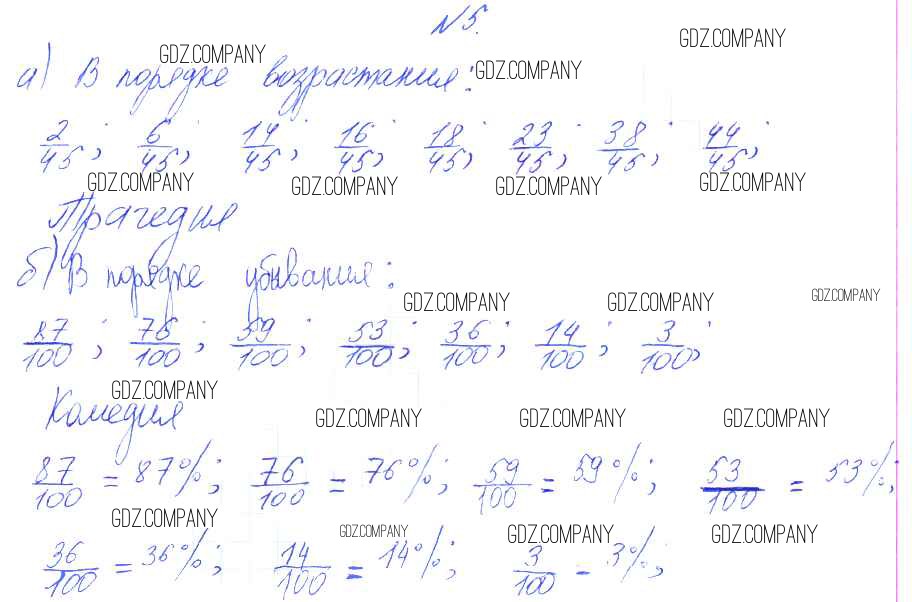 №5.
GDZ.COMPANY GDZ.COMPANY
а) В порядке возрастания: GDZ.COMPANY
2/45; 6/45; 14/45; 16/45; 18/45; 23/45; 38/45; 44/45;
GDZ.COMPANY GDZ.COMPANY GDZ.COMPANY GDZ.COMPANY
Трагедия
б) В порядке убывания:
GDZ.COMPANY GDZ.COMPANY GDZ.COMPANY
87/100; 76/100; 59/100; 53/100; 36/100; 14/100; 3/100;
GDZ.COMPANY
Комедия GDZ.COMPANY GDZ.COMPANY GDZ.COMPANY
87/100 = 87%; 76/100 = 76%; 59/100 = 59%; 53/100 = 53%;
GDZ.COMPANY GDZ.COMPANY GDZ.COMPANY GDZ.COMPANY
36/100 = 36%; 14/100 = 14%; 3/100 = 3%;